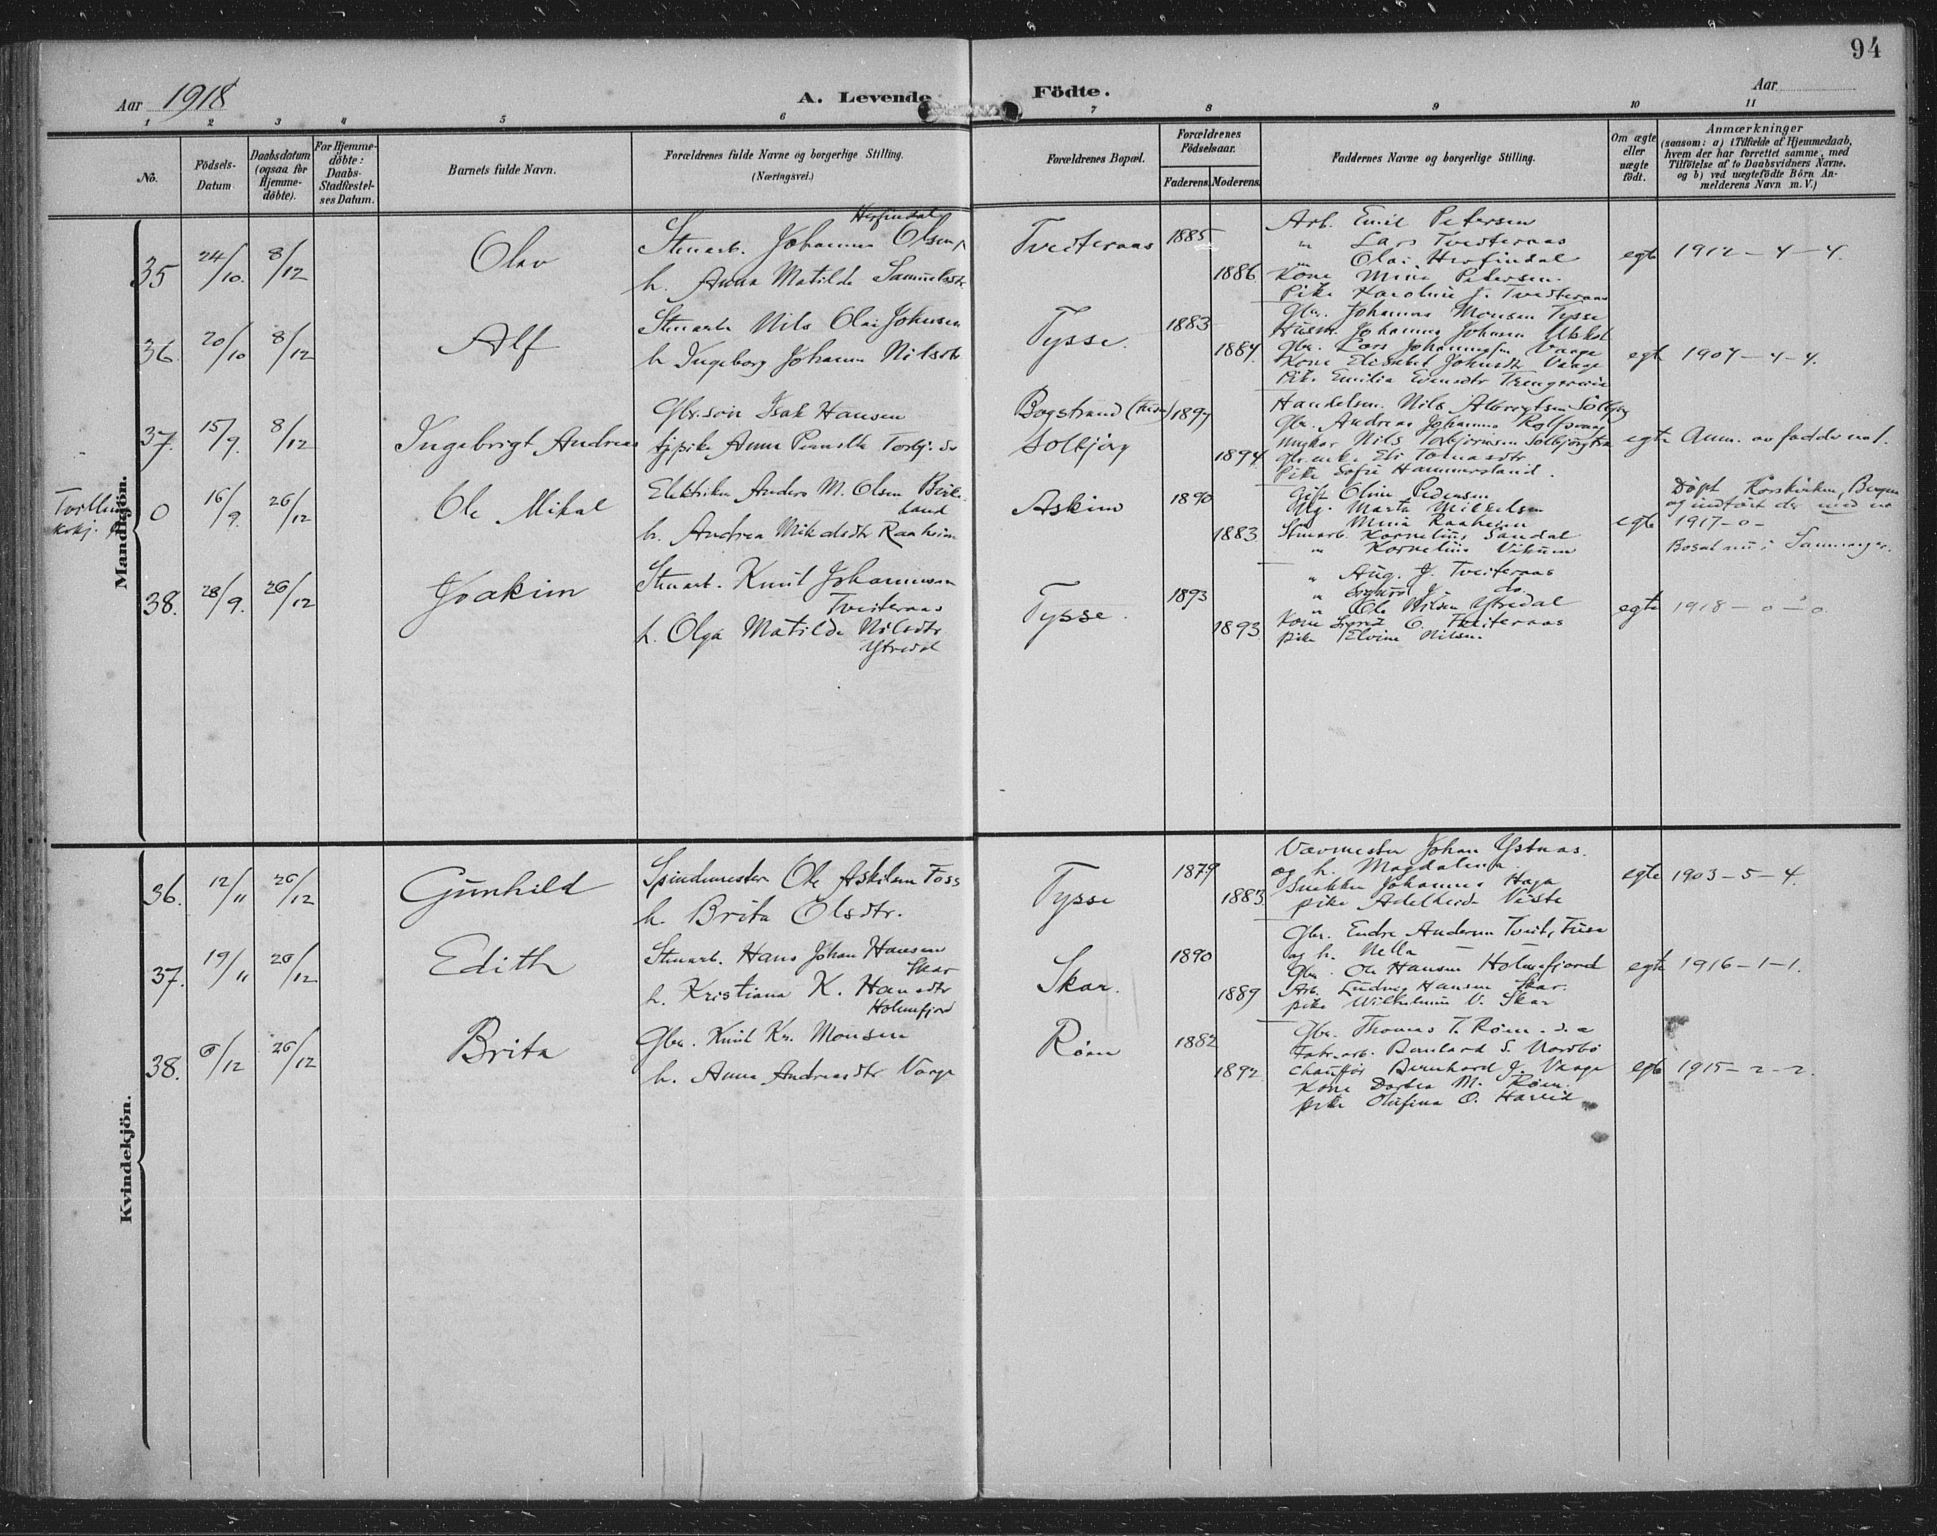 94
Aar 1918
A. Levende Födte.
Aar
1 2 3 4 5 6 7 8 9 10 11
No.
Födsels-Datum.
Daabsdatum (ogsaa for Hjemme-döbte).
For Hjemme-döbte: Daabs-Stadfæstel-ses Datum.
Barnets fulde Navn.
Forældrenes fulde Navne og borgerlige Stilling.
(Næringsvei.)
Forældrenes Bopæl.
Forældrenes Födselsaar.
Faderens. Moderens.
Faddernes Navne og borgerlige Stilling.
Om ægte eller uægte födt.
Anmærkninger
(saasom: a) i Tilfælde af Hjemmedaab,
hvem der har forrettet samme, med
Tilföielse af to Daabsvidners Navne,
og b) ved uægtefödte Börn An-
melderens Navn m. V.)
Mandkjön.
35 24/10. 8/12 Olav
Herfindal
Stenarb. Johannes Olsen
h. Anna Matilde Samuelsdtr
Tveiteraas 1885 1886
Arb. Emil Petersen
" Lars Tveiteraas
" Olai Herfindal
Kone Mina Petersen.
Pike Karoline J. Tveiteraas
egte 1912 - 4 - 4.
36. 20/10 8/12 Alf
Stenarb Nils Olai Johnsen
h. Ingeborg Johanna Nilsdtr.
Tysse. 1883 1884.
Gbr. Johannes Monsen Tysse
Husm. Johannes Johnsen
Gbr. Lars Johannessen Vaage
Kone Elisabet Johnsdtr Vaage
Pike Emilie Evensdtr
egt 1907 - 4 - 4.
37. 15/9. 8/12 Ingebrigt Andreas
Gbr.søn Isak Hansen
pike Anna Torbj.
Bogstrand
Solbjørg
1897 1894
Handelsm. Nils Albrigtsen Solbjørg
Gbr. Andreas Johannes
Ungkar Nils Torbjørnsen
Eli Tomasdtr
Pike Sofie Hammersland.
egte Anm. av fadder no 1.
Tvilling
0 16/9. 26/12 Ole Mikal
Elektriker Anders M. Olsen Birke-
land
h. Andrea Mikalsdtr Raaheim
Askim 1890 1883
Gift Oline Pedersen
Ug. Marta Mikkelsen
" Mina Raaheim
Stenarb. Kornelius Sandal
" Kornelius Vikum
egte
Døpt Korskirken, Bergen
og indført der med no
1917 - 0 -
Bosat nu i Samnanger.
38. 28/9. 26/12 Joakim
Stenarb. Knut Johannessen
Tveiteraas
h. Olga Matilde Nilsdtr
Ytredal
Tysse. 1893 1893
" Aug. J. Tveiteraas
" Sigurd J. do.
" Ole Nilsen Ytredal
Kone Sigrid O. Tveiteraas
pike Elvine Nilsen.
egte 1918 - 0 - 0.
Kvindekjön.
36. 12/11 26/12 Gunhild
Spindemester Ole Askilsen Foss
h. Brita Olsdtr.
Tysse 1879 1883
Vævmester Johan Ystnæs.
og h. Magdalena
Snekker Johannes Haga
pike Adelheid Veiste
egte 1903 - 5 - 4.
37. 19/11 26/12 Edith
Stenarb. Hans Johan Hansen
Skar
h. Kristiana K. Hansdtr
Holmefjord
Skar. 1890 1889
Gbr. Endre Andersen Tveit, Fusa
og h. Nella
Gbr. Ole Hansen Holmefjord
Arb. Ludvig Hansen Skar.
pike Wilhelmine V. Skar
egte 1916 - 1 - 1.
38. 6/12 26/12 Brita
Gbr. Knut Kr. Monsen
h. Anna Andreasdtr Vaage
Røen 1882 1892
Gbr. Thomas T. Røen. s. a
Fabr.arb. S. Nordbø
Chauffør Bernhard J. Vaage
Kone Dortea M. Røen.
pike Olufina O.
egte 1915 - 2 - 2.